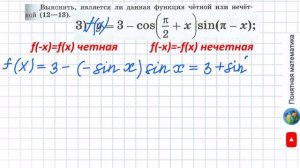 Выяснить, является ли данная функция чётной или нечёт-
(12—13).
3) f(x) = 3 − cos(π/2 + x) sin(π − x);
f(-x)=f(x) четная f(-x)=-f(x) нечетная
f(x) = 3 − (− sin x) sin x = 3 + sin
Понятная математика